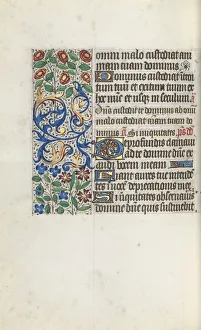 omni malo custodiat ani
mam tuam dominus
Dominus custodiat introi
tum tuū et exitum tuum ex
hoc nūc et usq; in seculum
dominus custodiat te ab omni
malo custodiat animam tuam do
minus Si iniquitates ps
De profundis clamavi
ad te domine dn̄e ex
audi vocem meam
Fiant aures tue intende
tes in vocē deprecationis mee
Si iniquitates observaveris
domine dn̄e quis sustinebit